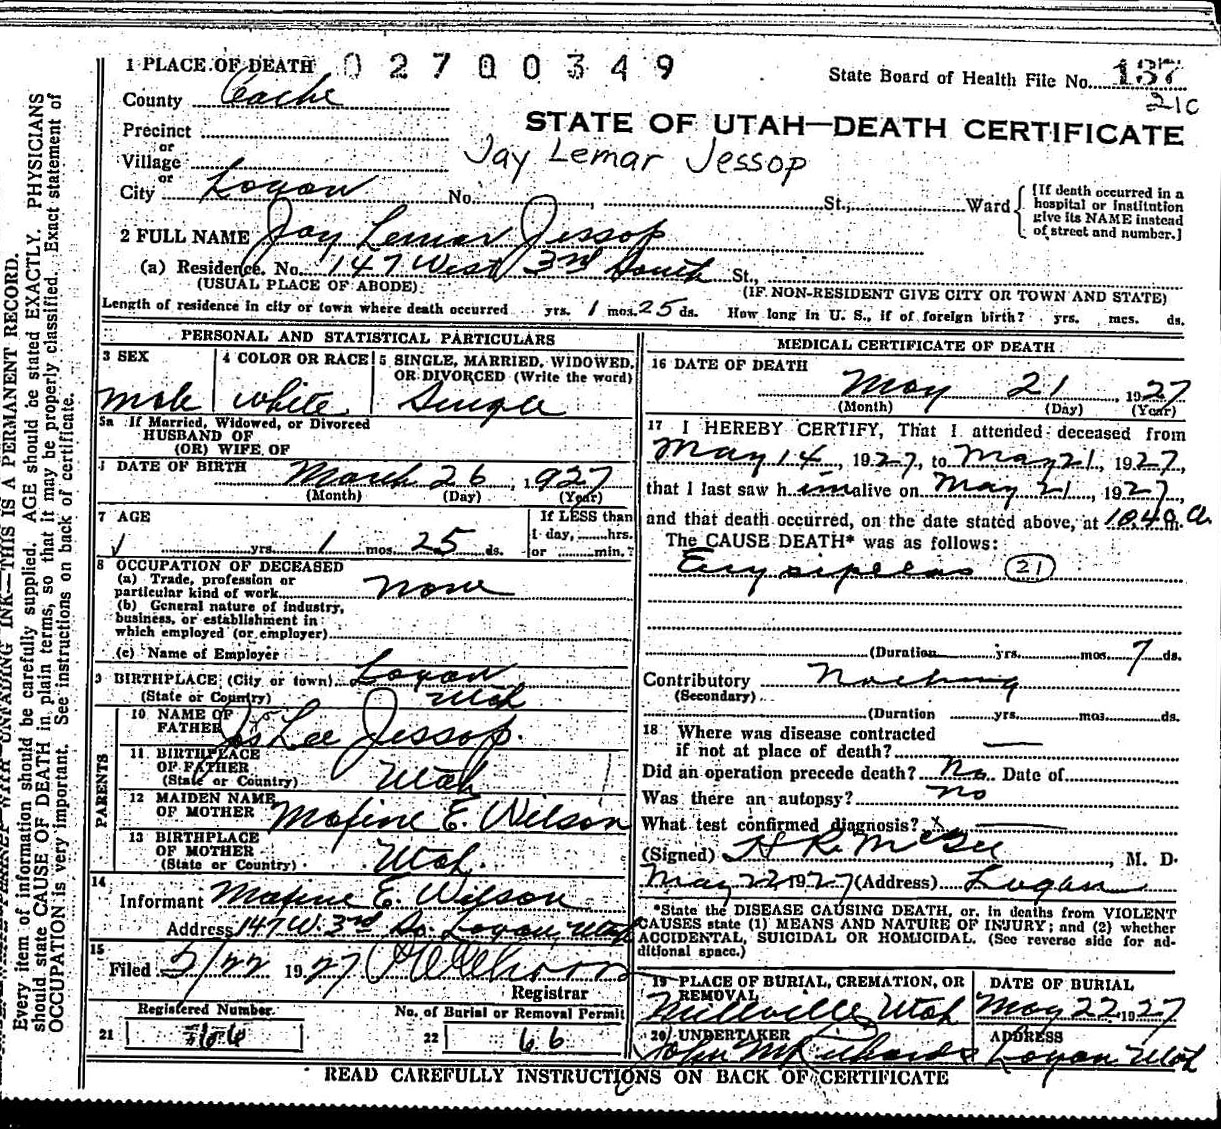 1 PLACE OF DEATH 02700349
State Board of Health File No. 137
21C
County Cache
STATE OF UTAH—DEATH CERTIFICATE
Precinct
or
Village
Jay Lemar Jessop
or
City Logan No. , St., Ward
{If death occurred in a hospital or institution give its NAME instead of street and number.]
2 FULL NAME Jay Lemar Jessop
(a) Residence. No. 147 West 3rd South St.,
(USUAL PLACE OF ABODE) (IF NON-RESIDENT GIVE CITY OR TOWN AND STATE)
Length of residence in city or town where death occurred yrs. 1 mos. 25 ds. How long in U. S., if of foreign birth? yrs. mos. ds.
PERSONAL AND STATISTICAL PARTICULARS
3 SEX
male
4 COLOR OR RACE
white
5 SINGLE, MARRIED, WIDOWED, OR DIVORCED (Write the word)
Single
5a If Married, Widowed, or Divorced
HUSBAND OF
(OR) WIFE OF
DATE OF BIRTH March 26, 1927
(Month) (Day) (Year)
7 AGE
yrs. 1 mos. 25 ds.
If LESS than
1 day, hrs.
or min.?
8 OCCUPATION OF DECEASED
(a) Trade, profession or
particular kind of work none
(b) General nature of industry,
business, or establishment in
which employed (or employer)
(c) Name of Employer
9 BIRTHPLACE (City or town) Logan
(State or Country) Utah
PARENTS
10 NAME OF
FATHER Lee Jessop.
11 BIRTHPLACE
OF FATHER
(State or Country) Utah
12 MAIDEN NAME
OF MOTHER Maxine E. Wilson
13 BIRTHPLACE
OF MOTHER
(State or Country) Utah.
14
Informant Maxine E. Wilson
Address 147 W. 3rd So. Logan Utah
15
Filed 5/22 1927
Registrar
Registered Number.
21
No. of Burial or Removal Permit
22 66
MEDICAL CERTIFICATE OF DEATH
16 DATE OF DEATH
May 21, 1927
(Month) (Day) (Year)
17 I HEREBY CERTIFY, That I attended deceased from
May 14, 1927, to May 21, 1927,
that I last saw h im alive on May 21, 1927,
and that death occurred, on the date stated above, at 10.40 a m.
The CAUSE DEATH* was as follows:
Erysipelas (21)
(Duration yrs. mos. 7 ds.
Contributory Nothing
(Secondary)
(Duration yrs. mos. ds.
18 Where was disease contracted
if not at place of death? —
Did an operation precede death? No Date of
Was there an autopsy? no
What test confirmed diagnosis? x —
(Signed) H R McGee, M. D.
May 22 1927 (Address) Logan
*State the DISEASE CAUSING DEATH, or, in deaths from VIOLENT
CAUSES state (1) MEANS AND NATURE OF INJURY; and (2) whether
ACCIDENTAL, SUICIDAL OR HOMICIDAL. (See reverse side for ad-
ditional space.)
19 PLACE OF BURIAL, CREMATION, OR
REMOVAL
Millville, Utah
DATE OF BURIAL
May 22, 1927
20 UNDERTAKER
John M Richards
ADDRESS
Logan Utah
READ CAREFULLY INSTRUCTIONS ON BACK OF CERTIFICATE
UNFADING INK—THIS IS A PERMANENT RECORD.
Every item of information should be carefully supplied. AGE should be stated EXACTLY. PHYSICIANS
should state CAUSE OF DEATH in plain terms, so that it may be properly classified. Exact statement of
OCCUPATION is very important. See instructions on back of certificate.